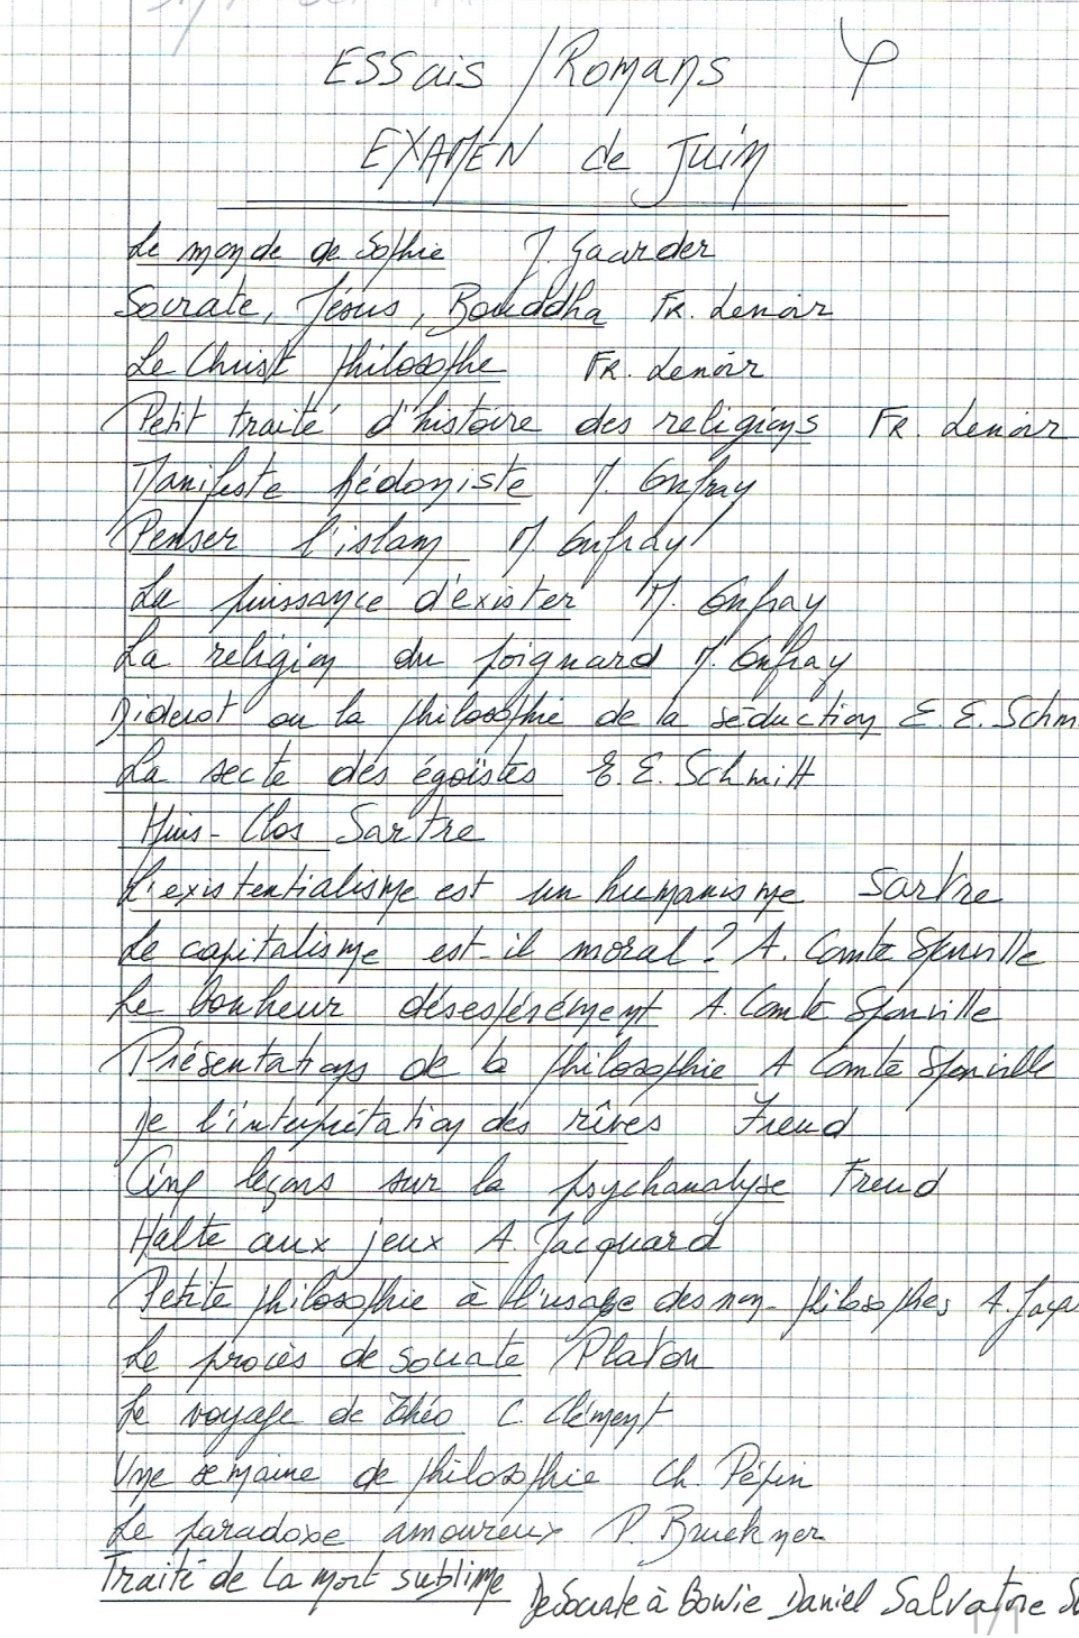 ESSais / Romans φ
EXAMEN de Juin
Le monde de Sophie J. Gaarder
Socrate, Jésus, Bouddha FR. Lenoir
Le Christ philosophe FR. Lenoir
Petit traité d'histoire des religions FR. Lenoir
Manifeste hédoniste M. Onfray
Penser l'islam M. Onfray
La puissance d'exister M. Onfray
La religion du poignard M. Onfray
Diderot ou la philosophie de la séduction E. E. Schm
La secte des égoïstes E. E. Schmitt
Huis-Clos Sartre
L'existentialisme est un humanisme Sartre
Le capitalisme est-il moral? A. Comte Sponville
Le bonheur désespérément A. Comte Sponville
Présentations de la philosophie A Comte Sponville
De l'interprétation des rêves Freud
Cinq leçons sur la psychanalyse Freud
Halte aux jeux A. Jacquard
Petite philosophie à l'usage des non-philosophes A. Jacqu
Le procès de Socrate Platon
Le voyage de Théo C. Clément
Une semaine de philosophie Ch. Pépin
Le paradoxe amoureux P. Bruckner
Traité de La mort sublime De Socrate à Bowie Daniel Salvatore
1/1